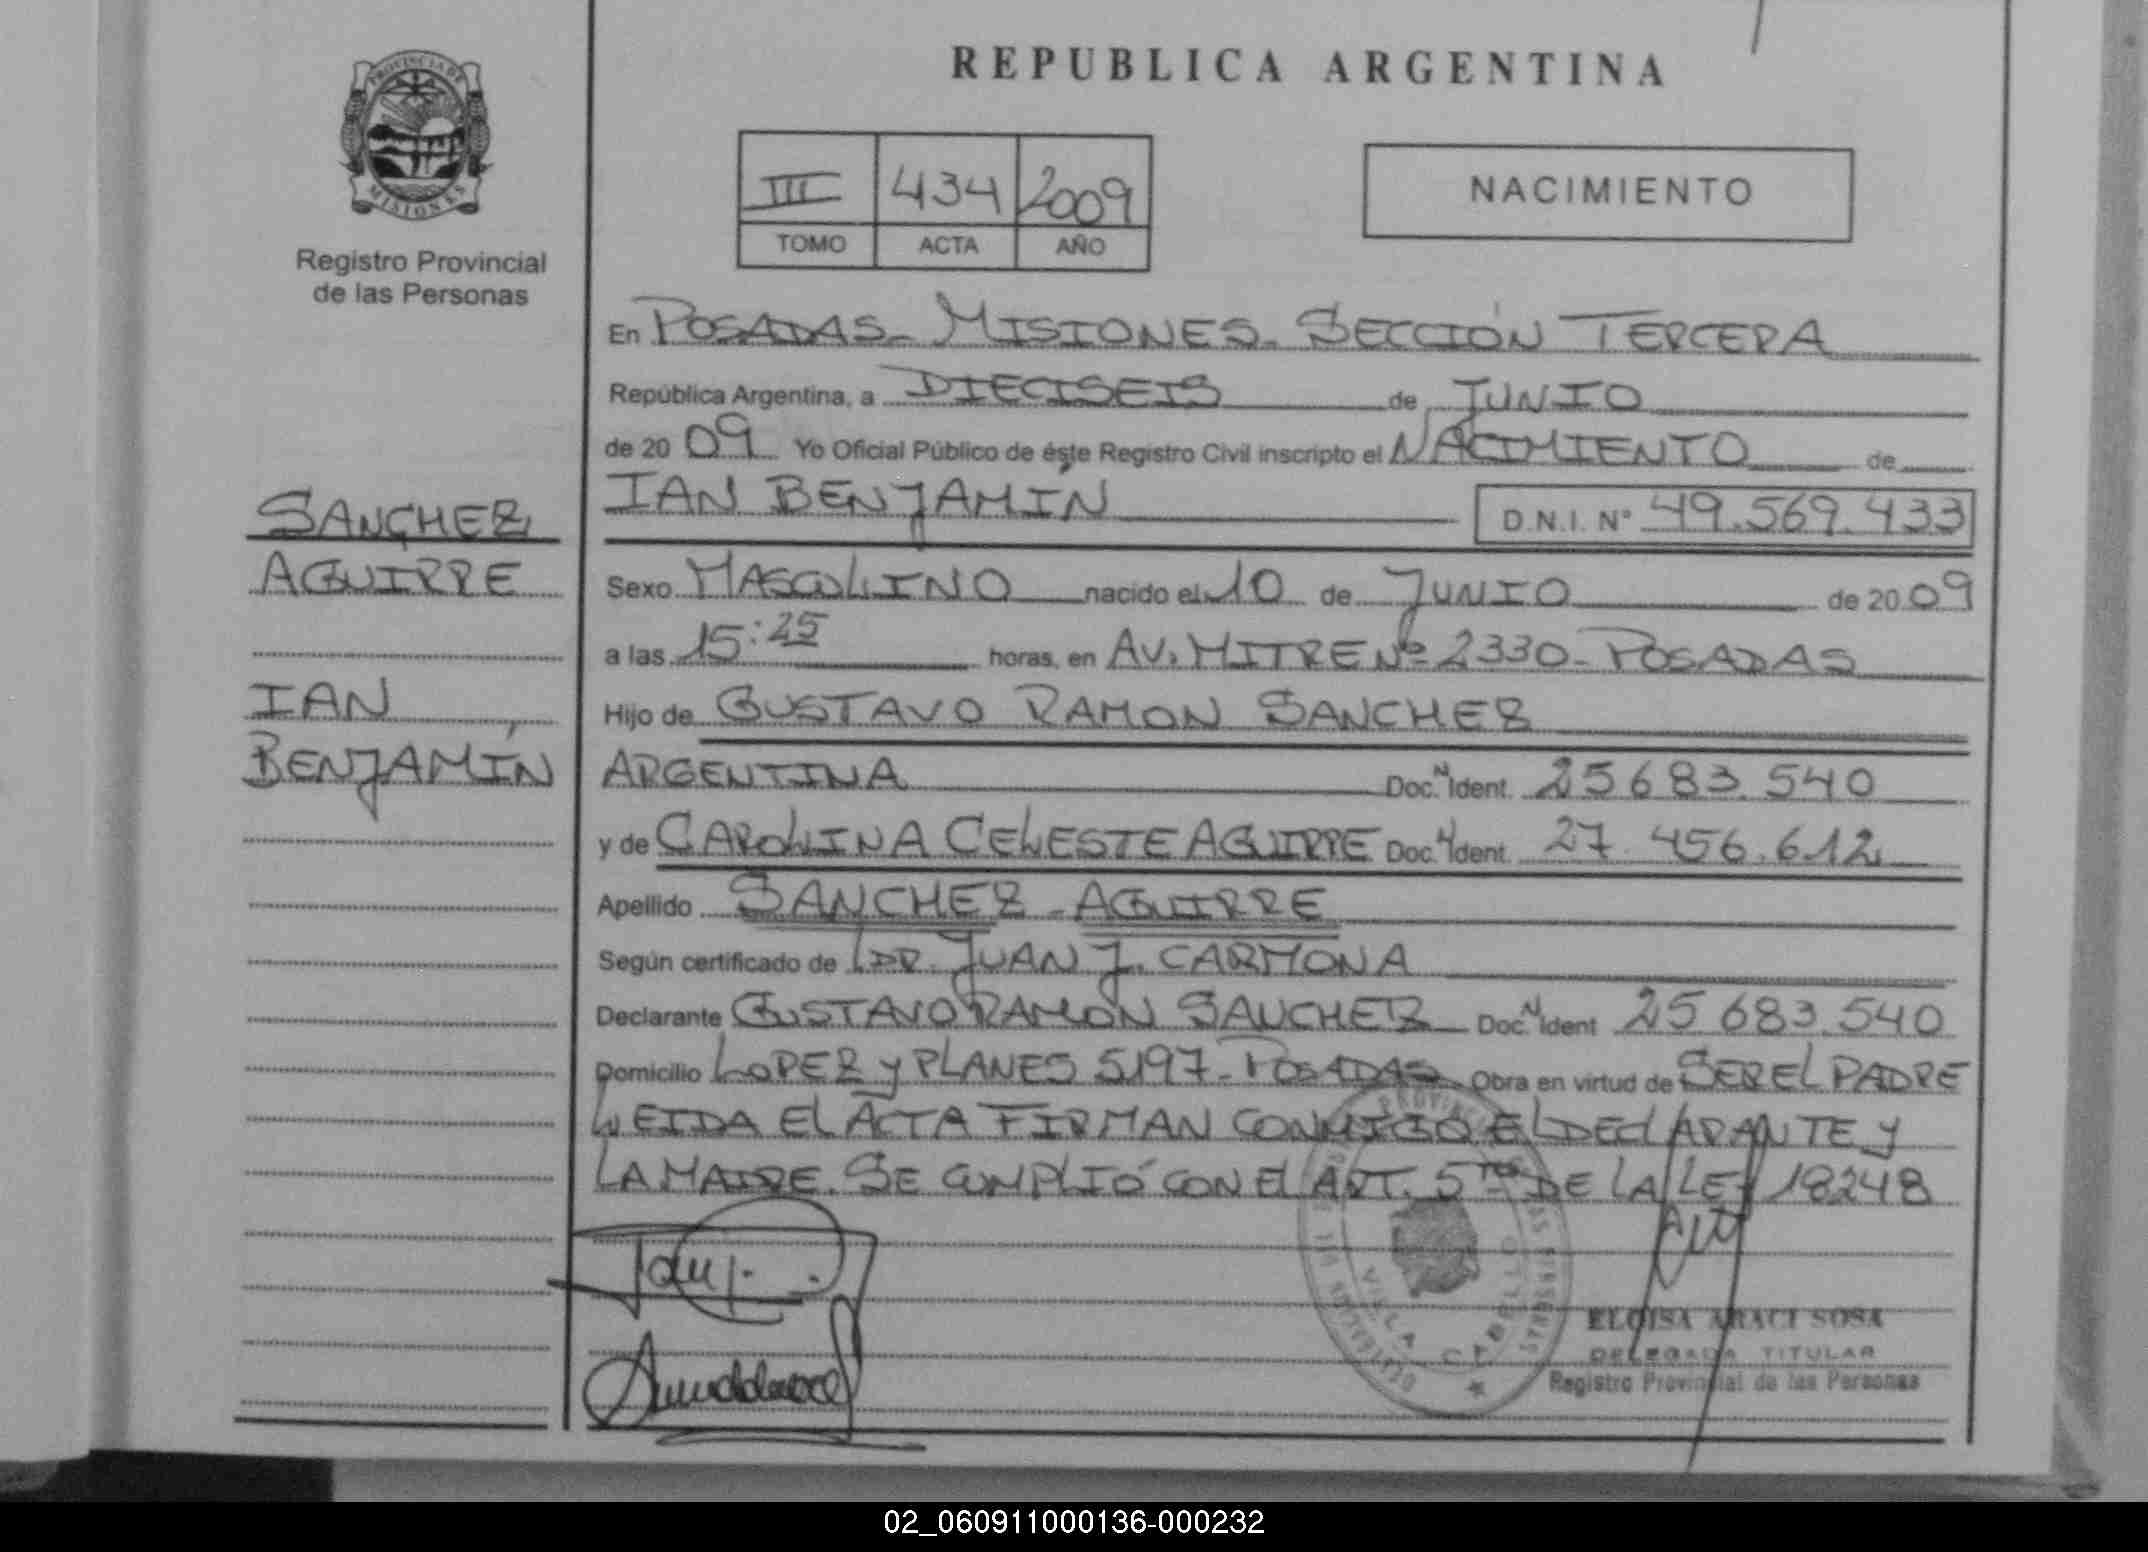 REPUBLICA ARGENTINA
PROVINCIA DE
MISIONES
Registro Provincial
de las Personas
III 434 2009
TOMO ACTA AÑO
NACIMIENTO
SANCHEZ
AGUIRRE
IAN
BENJAMÍN
En POSADAS - MISIONES - SECCIÓN TERCERA
República Argentina, a DIECISEIS de JUNIO
de 20 09 Yo Oficial Público de éste Registro Civil inscripto el NACIMIENTO de
IAN BENJAMÍN D.N.I. N° 49.569.433
Sexo MASCULINO nacido el 10 de JUNIO de 20 09
a las 15:25 horas, en AV. MITRE Nº 2330 - POSADAS
Hijo de GUSTAVO RAMON SANCHEZ
ARGENTINA Doc. N Ident. 25683.540
y de CAROLINA CELESTE AGUIRRE Doc. N Ident. 27.456.612
Apellido SANCHEZ - AGUIRRE
Según certificado de DR. JUAN J. CARMONA
Declarante GUSTAVO RAMÓN SANCHEZ Doc. N Ident 25 683.540
Domicilio LOPEZ y PLANES 5197 - POSADAS Obra en virtud de SER EL PADRE
LEIDA EL ACTA FIRMAN CONMIGO EL DECLARANTE y
LA MADRE. SE CUMPLIÓ CON EL ART. 5to DE LA LEY 18248
VILLA CABELLO
ELOISA ARACI SOSA
DELEGADA TITULAR
Registro Provincial de las Personas
02_060911000136-000232